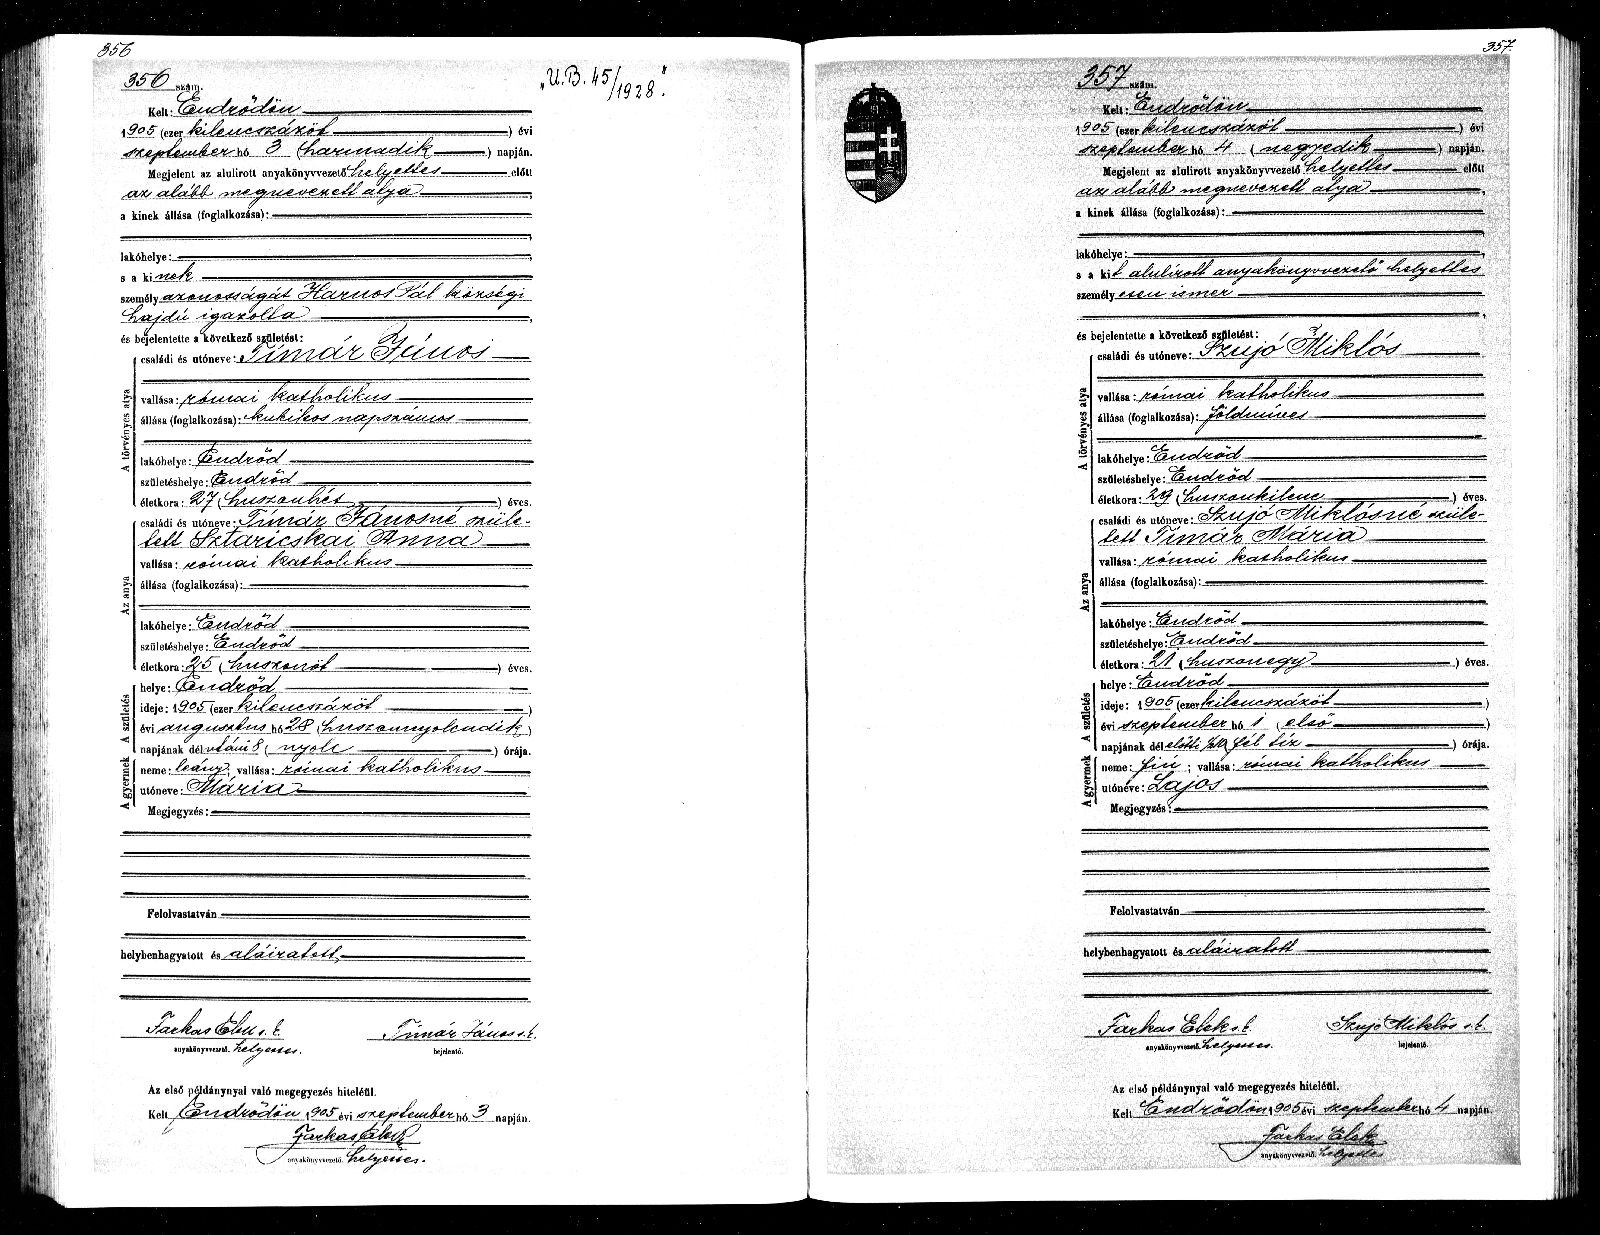 356
356 szám.
„U.B. 45/1928."
Kelt: Endrődön
1905 (ezer kilenczszázöt) évi
szeptember hó 3 (harmadik) napján.
Megjelent az alulirott anyakönyvvezető helyettes előtt
az alább megnevezett atya,
a kinek állása (foglalkozása):
lakóhelye:
s a kinek
személyazonosságát Harnos Pál községi
hajdú igazolta,
és bejelentette a következő születést:
A törvényes atya
családi és utóneve: Tímár János
vallása: római katholikus
állása (foglalkozása): kubikos napszámos
lakóhelye: Endrőd
születéshelye: Endrőd
életkora: 27 (huszonhét) éves.
Az anya
családi és utóneve: Tímár Jánosné szüle-
tett Sztaricskai Anna
vallása: római katholikus
állása (foglalkozása):
lakóhelye: Endrőd
születéshelye: Endrőd
életkora: 25 (huszonöt) éves.
A születés
helye: Endrőd
ideje: 1905 (ezer kilenczszázöt)
évi augusztus hó 28 (huszonnyolczadik)
napjának délutáni 8 (nyolc) órája.
A gyermek
neme: leány; vallása: római katholikus
utóneve: Mária
Megjegyzés:
Felolvastatván
helybenhagyatott és aláiratott.
Farkas Elek s. k. Tímár János s. k.
anyakönyvvezető. helyettes. bejelentő.
Az első példánynyal való megegyezés hiteléül.
Kelt Endrődön 1905 évi szeptember hó 3 napján.
Farkas Elek
anyakönyvvezető. helyettes.
357.
357 szám.
Kelt: Endrődön
1905 (ezer kilenczszázöt) évi
szeptember hó 4 (negyedik) napján.
Megjelent az alulirott anyakönyvvezető helyettes előtt
az alább megnevezett atya,
a kinek állása (foglalkozása):
lakóhelye:
s a kit alulírott anyakönyvvezető helyettes
személyesen ismer
és bejelentette a következő születést:
A törvényes atya
családi és utóneve: Szujó Miklós
vallása: római katholikus
állása (foglalkozása): földmíves
lakóhelye: Endrőd
születéshelye: Endrőd
életkora: 29 (huszonkilenc) éves.
Az anya
családi és utóneve: Szujó Miklósné szüle-
tett Tímár Mária
vallása: római katholikus
állása (foglalkozása):
lakóhelye: Endrőd
születéshelye: Endrőd
életkora: 21 (huszonegy) éves.
A születés
helye: Endrőd
ideje: 1905 (ezer kilenczszázöt)
évi szeptember hó 1 (első)
napjának délelőtti 1/2 10 fél tíz) órája.
A gyermek
neme: fiú; vallása: római katholikus
utóneve: Lajos
Megjegyzés:
Felolvastatván
helybenhagyatott és aláiratott
Farkas Elek s. k. Szujó Miklós s. k.
anyakönyvvezető. helyettes. bejelentő.
Az első példánynyal való megegyezés hiteléül.
Kelt Endrődön 1905 évi szeptember hó 4 napján.
Farkas Elek
anyakönyvvezető. helyettes